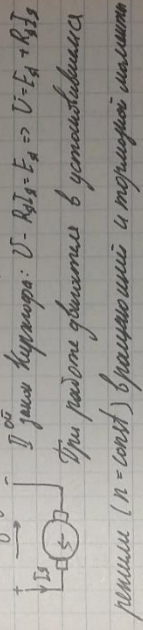 U
+ -
Iя
II ой закон Кирхгофа: U - RяIя = Eя => U = Eя + RяIя
При работе двигателя в установившимся
режиме (n = const) вращающий и тормозной моменты